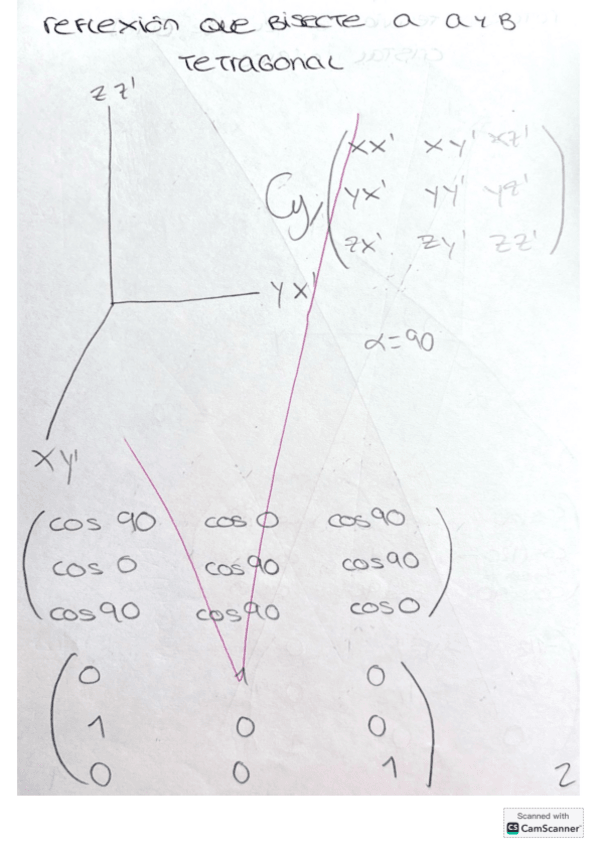 reflexión que Bisecte a a y B
Tetragonal
z z'
xx' xy' xz'
Cy,
yx' yy' yz'
zx' zy' zz'
y x'
α=90
x y'
cos 90 cos 0 cos 90
cos 0 cos 90 cos 90
cos 90 cos 90 cos 0
0 1 0
1 0 0
0 0 1
2
Scanned with
CS CamScanner